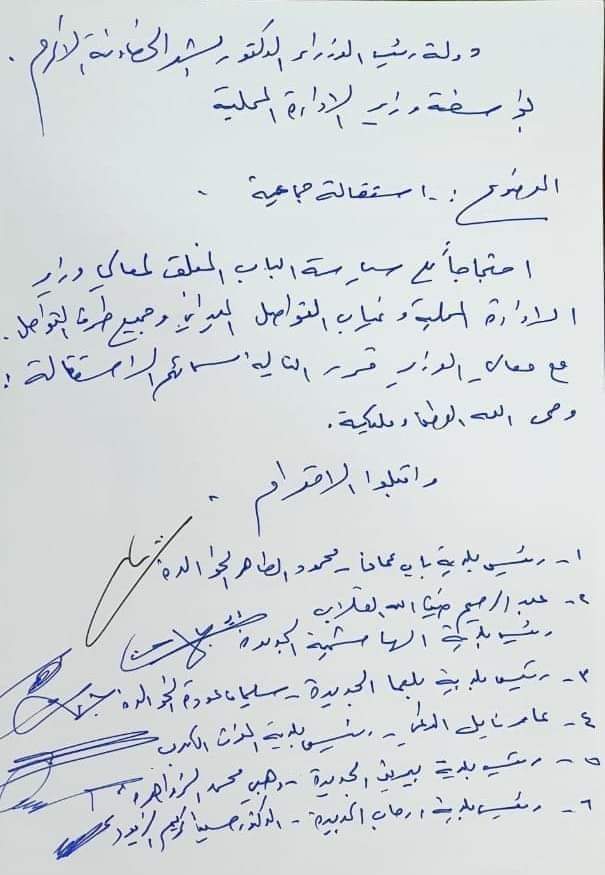 دولة رئيس الوزراء الدكتور بشر الخصاونة الأكرم .
بواسطة وزير الإدارة المحلية
الموضوع : - استقالة جماعية .
احتجاجاً على سياسة الباب المغلق لمعالي وزير
الإدارة المحلية وغياب التواصل الميداني وجميع طرق التواصل .
مع معالي الوزير قرر التالية اسمائهم الاستقالة :
وحمى الله الوطن ومليكه .
واقبلوا الاحترام .
١- رئيس بلدية باب عمان - محمود الطاهر الخوالدة
٢- عبد الرحيم ضيف الله القلاب
رئيس بلدية الهاشمية الجديدة
٣- رئيس بلدية بلعما الجديدة - سليمان عودة الخوالدة
٤- عامر نايل - رئيس بلدية الكبرى
٥- رئيس بلدية بيرين الجديدة - وهبي محمد الزواهرة
٦- رئيس بلدية ارحاب الجديدة - الدكتور كريم الزيود